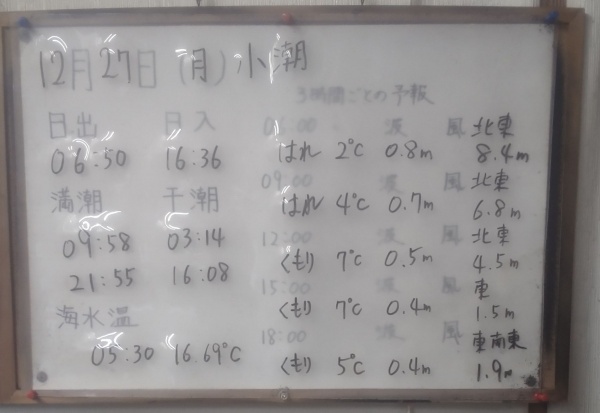 12月27日(月)小潮
3時間ごとの予報
日出 日入
06:50 16:36
満潮 干潮
09:58 03:14
21:55 16:08
海水温
05:30 16.69℃
06:00 波 風 北東
はれ 2℃ 0.8m 8.4m
09:00 波 風 北東
はれ 4℃ 0.7m 6.8m
12:00 波 風 北東
くもり 7℃ 0.5m 4.5m
15:00 波 風 東
くもり 7℃ 0.4m 1.5m
18:00 波 風 東南東
くもり 5℃ 0.4m 1.9m